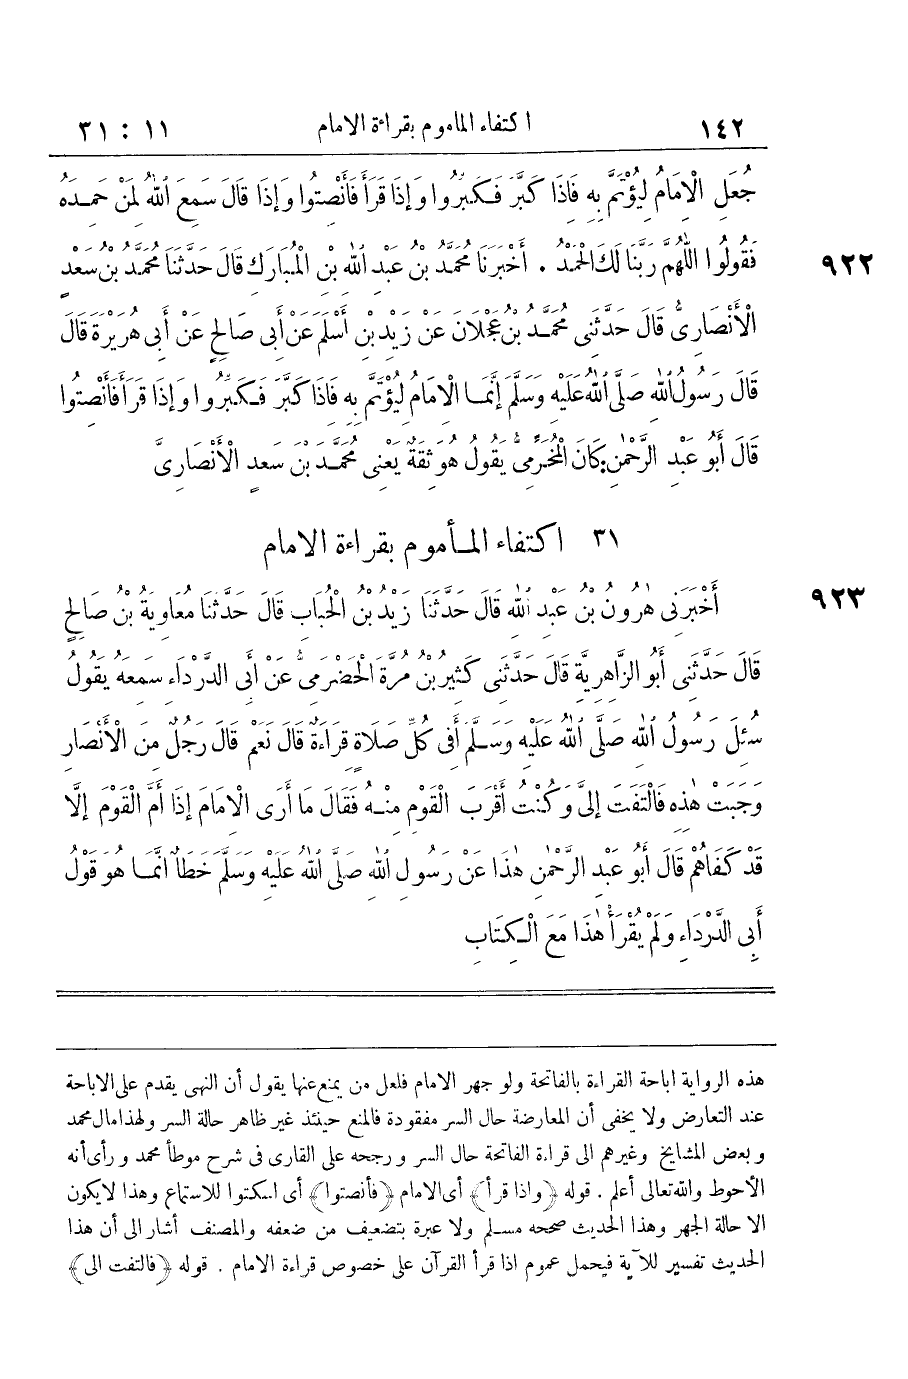 ١٤٢ اكتفاء المأموم بقراءة الامام ١١ : ٣١
جُعِلَ الْاِمَامُ لِيُؤْتَمَّ بِهِ فَاِذَا كَبَّرَ فَكَبِّرُوا وَاِذَا قَرَأَ فَأَنْصِتُوا وَاِذَا قَالَ سَمِعَ اللهُ لِمَنْ حَمِدَهُ
٩٢٢ فَقُولُوا اللّٰهُمَّ رَبَّنَا لَكَ الْحَمْدُ . أَخْبَرَنَا مُحَمَّدُ بْنُ عَبْدِ اللهِ بْنِ الْمُبَارَكِ قَالَ حَدَّثَنَا مُحَمَّدُ بْنُ سَعْدٍ
الْأَنْصَارِىُّ قَالَ حَدَّثَنِى مُحَمَّدُ بْنُ عَجْلَانَ عَنْ زَيْدِ بْنِ أَسْلَمَ عَنْ أَبِى صَالِحٍ عَنْ أَبِى هُرَيْرَةَ قَالَ
قَالَ رَسُولُ اللهِ صَلَّى اللهُ عَلَيْهِ وَسَلَّمَ إِنَّمَا الْاِمَامُ لِيُؤْتَمَّ بِهِ فَاِذَا كَبَّرَ فَكَبِّرُوا وَاِذَا قَرَأَ فَأَنْصِتُوا
قَالَ أَبُو عَبْدِ الرَّحْمٰنِ كَانَ الْمُخَرِّمِىُّ يَقُولُ هُوَ ثِقَةٌ يَعْنِى مُحَمَّدَ بْنَ سَعْدٍ الْأَنْصَارِىَّ
٣١ اكتفاء المأموم بقراءة الامام
٩٢٣ أَخْبَرَنِى هٰرُونُ بْنُ عَبْدِ اللهِ قَالَ حَدَّثَنَا زَيْدُ بْنُ الْحُبَابِ قَالَ حَدَّثَنَا مُعَاوِيَةُ بْنُ صَالِحٍ
قَالَ حَدَّثَنِى أَبُو الزَّاهِرِيَّةِ قَالَ حَدَّثَنِى كَثِيرُ بْنُ مُرَّةَ الْحَضْرَمِىُّ عَنْ أَبِى الدَّرْدَاءِ سَمِعَهُ يَقُولُ
سُئِلَ رَسُولُ اللهِ صَلَّى اللهُ عَلَيْهِ وَسَلَّمَ أَفِى كُلِّ صَلَاةٍ قِرَاءَةٌ قَالَ نَعَمْ قَالَ رَجُلٌ مِنَ الْأَنْصَارِ
وَجَبَتْ هٰذِهِ فَالْتَفَتَ إِلَىَّ وَكُنْتُ أَقْرَبَ الْقَوْمِ مِنْهُ فَقَالَ مَا أَرَى الْاِمَامَ إِذَا أَمَّ الْقَوْمَ إِلَّا
قَدْ كَفَاهُمْ قَالَ أَبُو عَبْدِ الرَّحْمٰنِ هٰذَا عَنْ رَسُولِ اللهِ صَلَّى اللهُ عَلَيْهِ وَسَلَّمَ خَطَأٌ اِنَّمَا هُوَ قَوْلُ
أَبِى الدَّرْدَاءِ وَلَمْ يُقْرَأْ هٰذَا مَعَ الْكِتَابِ
هذه الرواية اباحة القراءة بالفاتحة ولو جهر الامام فلعل من يمنع عنها يقول أن النهى يقدم على الاباحة
عند التعارض ولا يخفى أن المعارضة حال السر مفقودة فالمنع حينئذ غير ظاهر حالة السر ولهذا مال محمد
وبعض المشايخ وغيرهم الى قراءة الفاتحة حال السر ورجحه على القارى فى شرح موطأ محمد ورأى أنه
الأحوط والله تعالى أعلم . قوله ﴿واذا قرأ﴾ أى الامام ﴿فأنصتوا﴾ أى اسكتوا للاستماع وهذا لا يكون
الا حالة الجهر وهذا الحديث صححه مسلم ولا عبرة بتضعيف من ضعفه والمصنف أشار الى أن هذا
الحديث تفسير للآية فيحمل عموم اذا قرأ القرآن على خصوص قراءة الامام . قوله ﴿فالتفت الى﴾